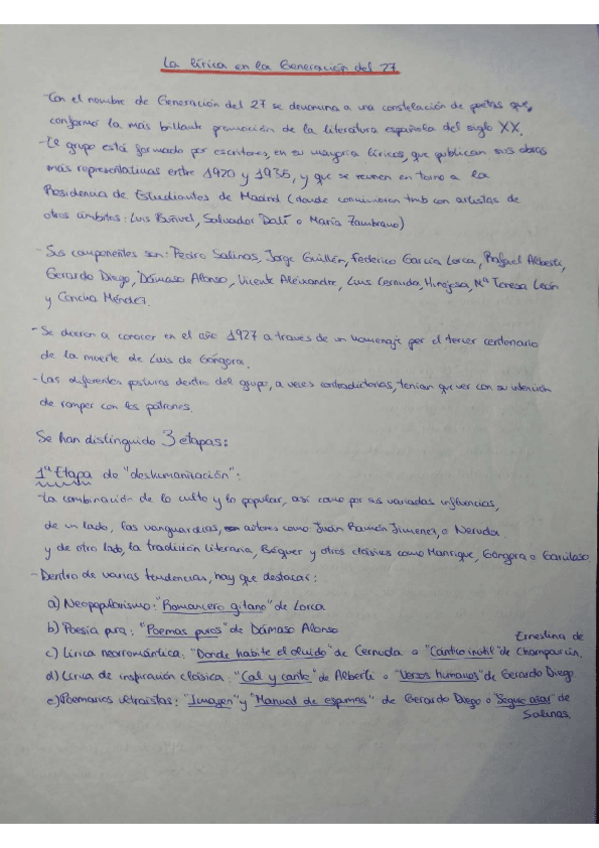 La lírica en la Generación del 27
-Con el nombre de Generación del 27 se denomina a una constelación de poetas que,
conformó la más brillante promoción de la literatura española del siglo XX.
-El grupo está formado por escritores, en su mayoría líricos, que publican sus obras
más representativas entre 1920 y 1935, y que se reunen en torno a la
Residencia de Estudiantes de Madrid (donde convivieron tmb con artistas de
otros ámbitos: Luis Buñuel, Salvador Dalí o María Zambrano)
-Sus componentes son: Pedro Salinas, Jorge Guillén, Federico García Lorca, Rafael Alberti,
Gerardo Diego, Dámaso Alonso, Vicente Aleixandre, Luis Cernuda, Hinojosa, Mª Teresa León
y Concha Méndez.
-Se dieron a conocer en el año 1927 a traves de un homenaje por el tercer centenario
de la muerte de Luis de Góngora.
-Las diferentes posturas dentro del grupo, a veces contradictorias, tenian que ver con su intención
de romper con los patrones.
Se han distinguido 3 etapas:
1ª Etapa de "deshumanización":
-La combinación de lo culto y lo popular, así como por sus variadas influencias,
de un lado, las vanguardias, autores como Juan Ramón Jimenez, o Neruda
y de otro lado, la tradición literaria, Béquer y otros clásicos como Manrique, Góngora o Garcilaso.
-Dentro de varias tendencias, hay que destacar:
a) Neopopularismo: "Romancero gitano" de Lorca
b) Poesía pura: "Poemas puros" de Dámaso Alonso
c) Lírica neorromántica: "Donde habite el olvido" de Cernuda o "Cántico inútil" de Ernestina de Champourcín.
d) Lírica de inspiración clásica: "Cal y canto" de Alberti o "Versos humanos" de Gerardo Diego
e) Poemarios ultraistas: "Imagen" y "Manual de espumas" de Gerardo Diego o "Seguro azar" de
Salinas.